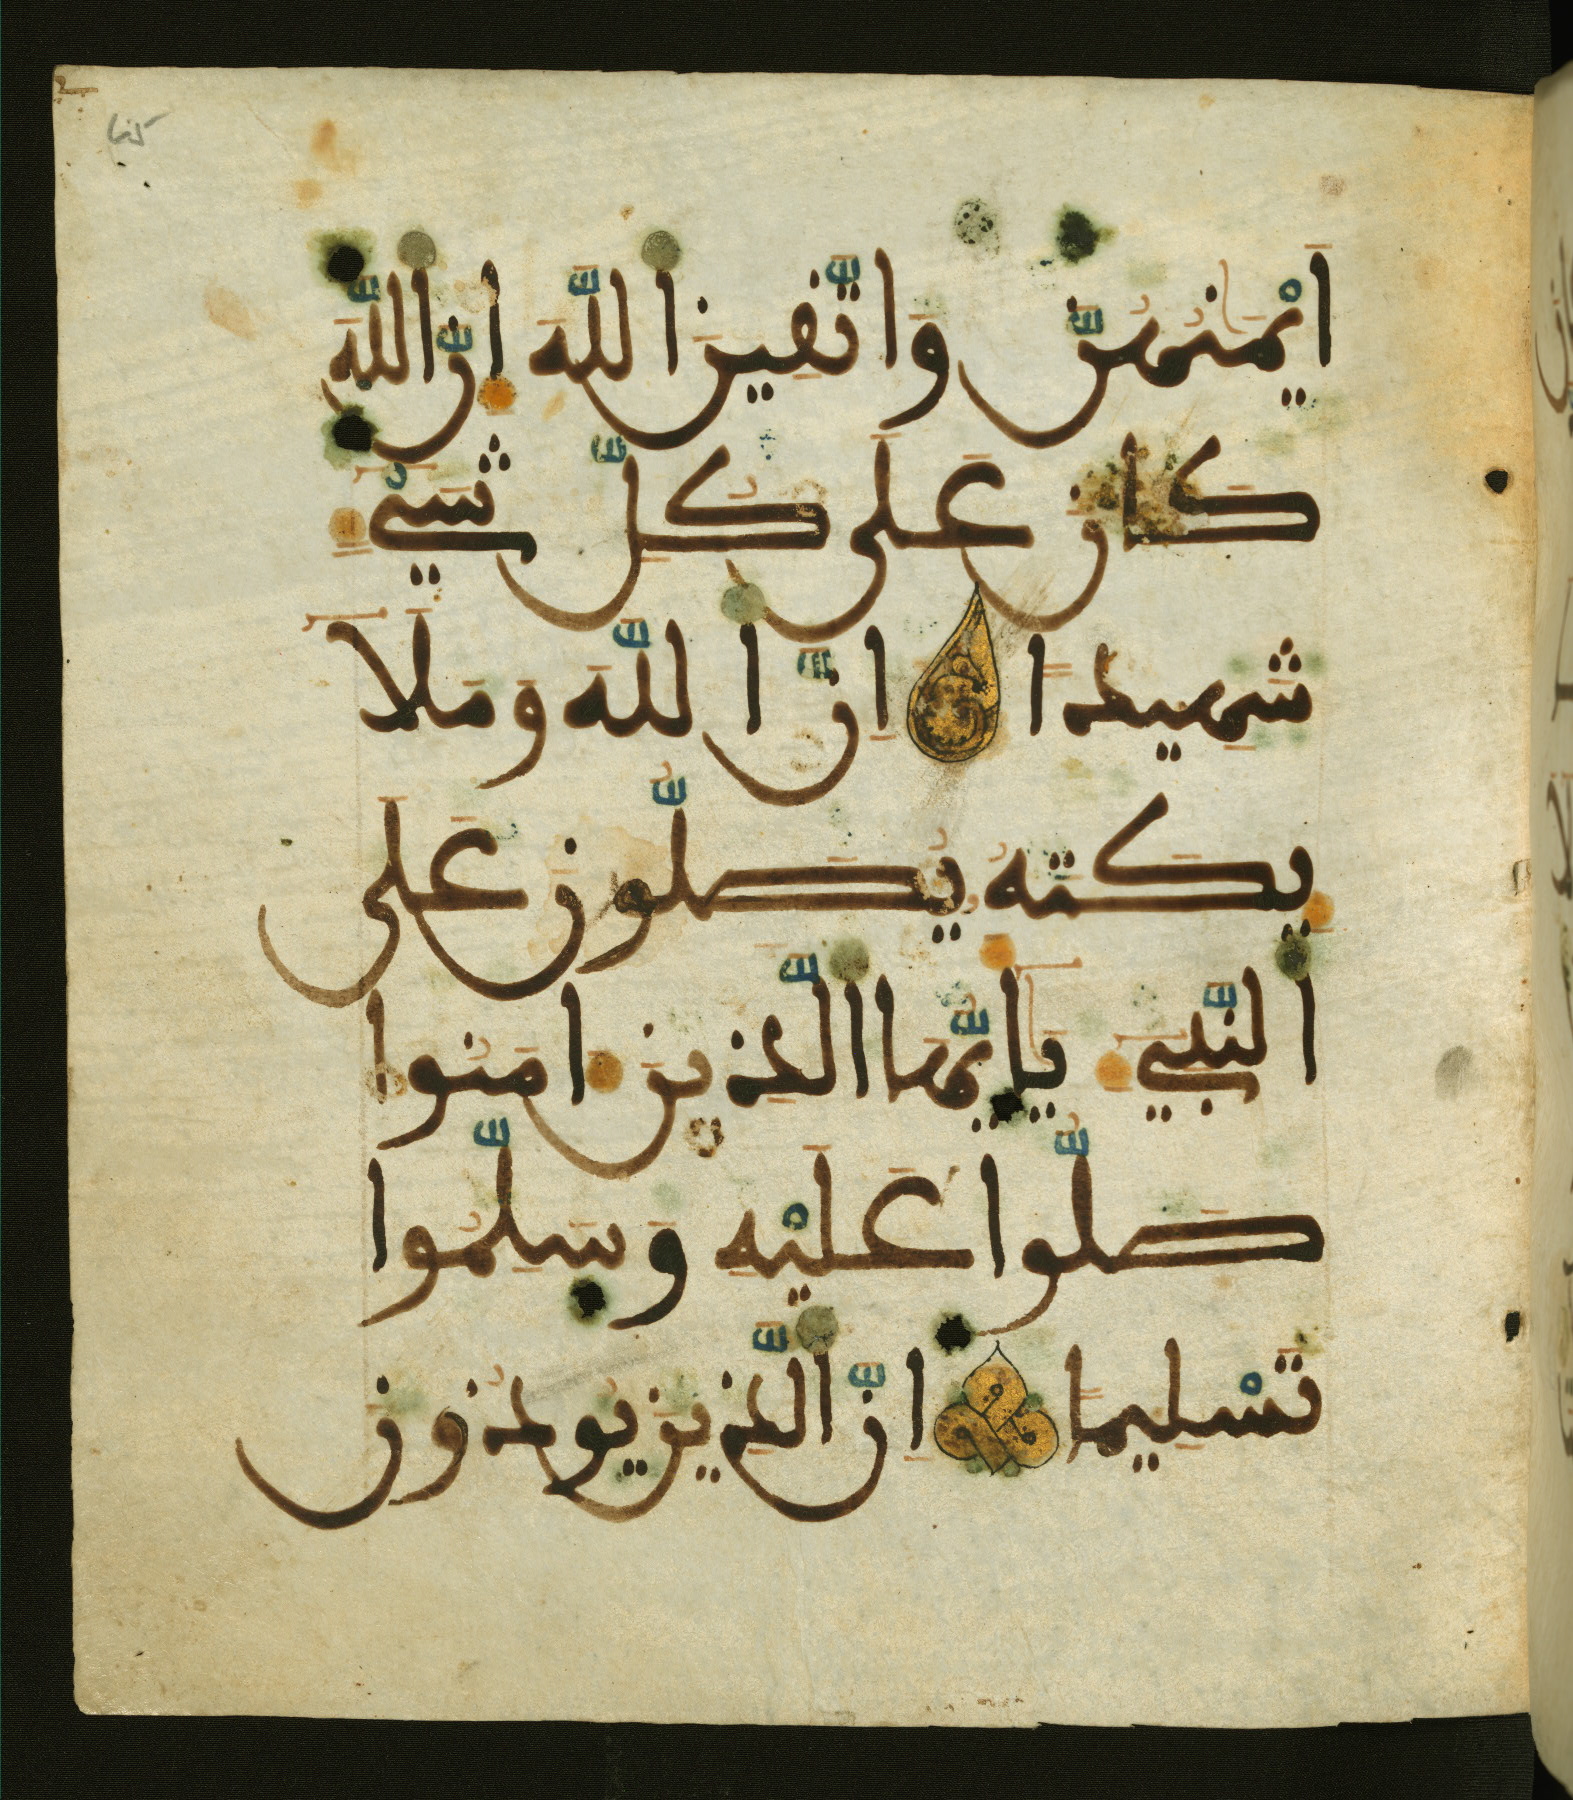 أَيْمَٰنُهُنَّ وَاتَّقِينَ اللَّهَ إِنَّ اللَّهَ
كَانَ عَلَىٰ كُلِّ شَيْءٍ
شَهِيدًا إِنَّ اللَّهَ وَمَلَٰٓ
ئِكَتَهُ يُصَلُّونَ عَلَى
النَّبِيءِ يَٰٓأَيُّهَا الَّذِينَ ءَامَنُوا
صَلُّوا عَلَيْهِ وَسَلِّمُوا
تَسْلِيمًا إِنَّ الَّذِينَ يُوذُونَ